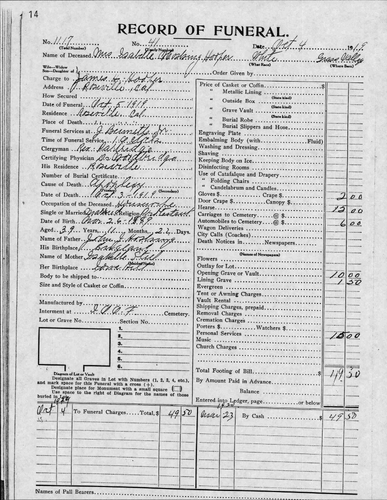 14
RECORD OF FUNERAL.
No. 1117 No. 41 Date Oct 4 191
(Total Number) (Yearly Number)
Name of Deceased Mrs Isabelle Hooper White
(What Race) (Where Born)
Charge to James Hooper
Address Roseville Cal
How Secured
Date of Funeral Oct 5 1919
Residence Roseville Cal
Place of Death
Funeral Services at
Time of Funeral Service
Clergyman Rev.
Certifying Physician Dr
His Residence Roseville
Number of Burial Certificate
Cause of Death Apoplexy
Date of Death Oct 3 1919
Occupation of the Deceased Housewife
Single or Married Religion Protestant
Date of Birth
Aged 39 Years 11 Months 2 Days
Name of Father John
His Birthplace
Name of Mother Isabelle
Her Birthplace
Body to be shipped to
Size and Style of Casket or Coffin
Manufactured by
Interment at I.O.O.F Cemetery.
Lot or Grave No. Section No.
1.
2.
3.
4.
5.
6.
Diagram of Lot or Vault
Designate all Graves in Lot with Numbers (1, 2, 3, 4, etc.),
and mark space for this Funeral with a cross (+).
Designate place for Monument with a small square
Use space to the right of Diagram for the names of those
buried in lot.
Order Given by
Price of Casket or Coffin
" Metallic Lining
" Outside Box
" Grave Vault
" Burial Robe
" Burial Slipper and Hose
Engraving Plate
Embalming Body (with Fluid)
Washing and Dressing
Shaving
Keeping Body on Ice
Disinfecting Rooms
Use of Catafalque and Drapery
" Folding Chairs
" Candelabrum and Candles
Gloves $ Crape $ 2 00
Door Crape $ Canopy $
Hearse 15 00
Carriages to Cemetery @ $
Automobiles to Cemetery @ $ 6 00
Wagon Deliveries
City Calls (Coaches)
Death Notices in Newspapers
(Names of Newspapers)
Flowers
Outlay for Lot
Opening Grave or Vault 10 00
Lining Grave 1 50
Evergreen
Tent or Awning Charges
Vault Rental
Shipping Charges, prepaid
Removal Charges
Cremation Charges
Porters $ Watchers $
Personal Services 15 00
Music
Church Charges
Total Footing of Bill $ 49 50
By Amount Paid in Advance
Balance
Entered into Ledger, page or below.
Oct 4 To Funeral Charges, Total, $ 49 50 23 By Cash $ 49 50
Names of Pall Bearers